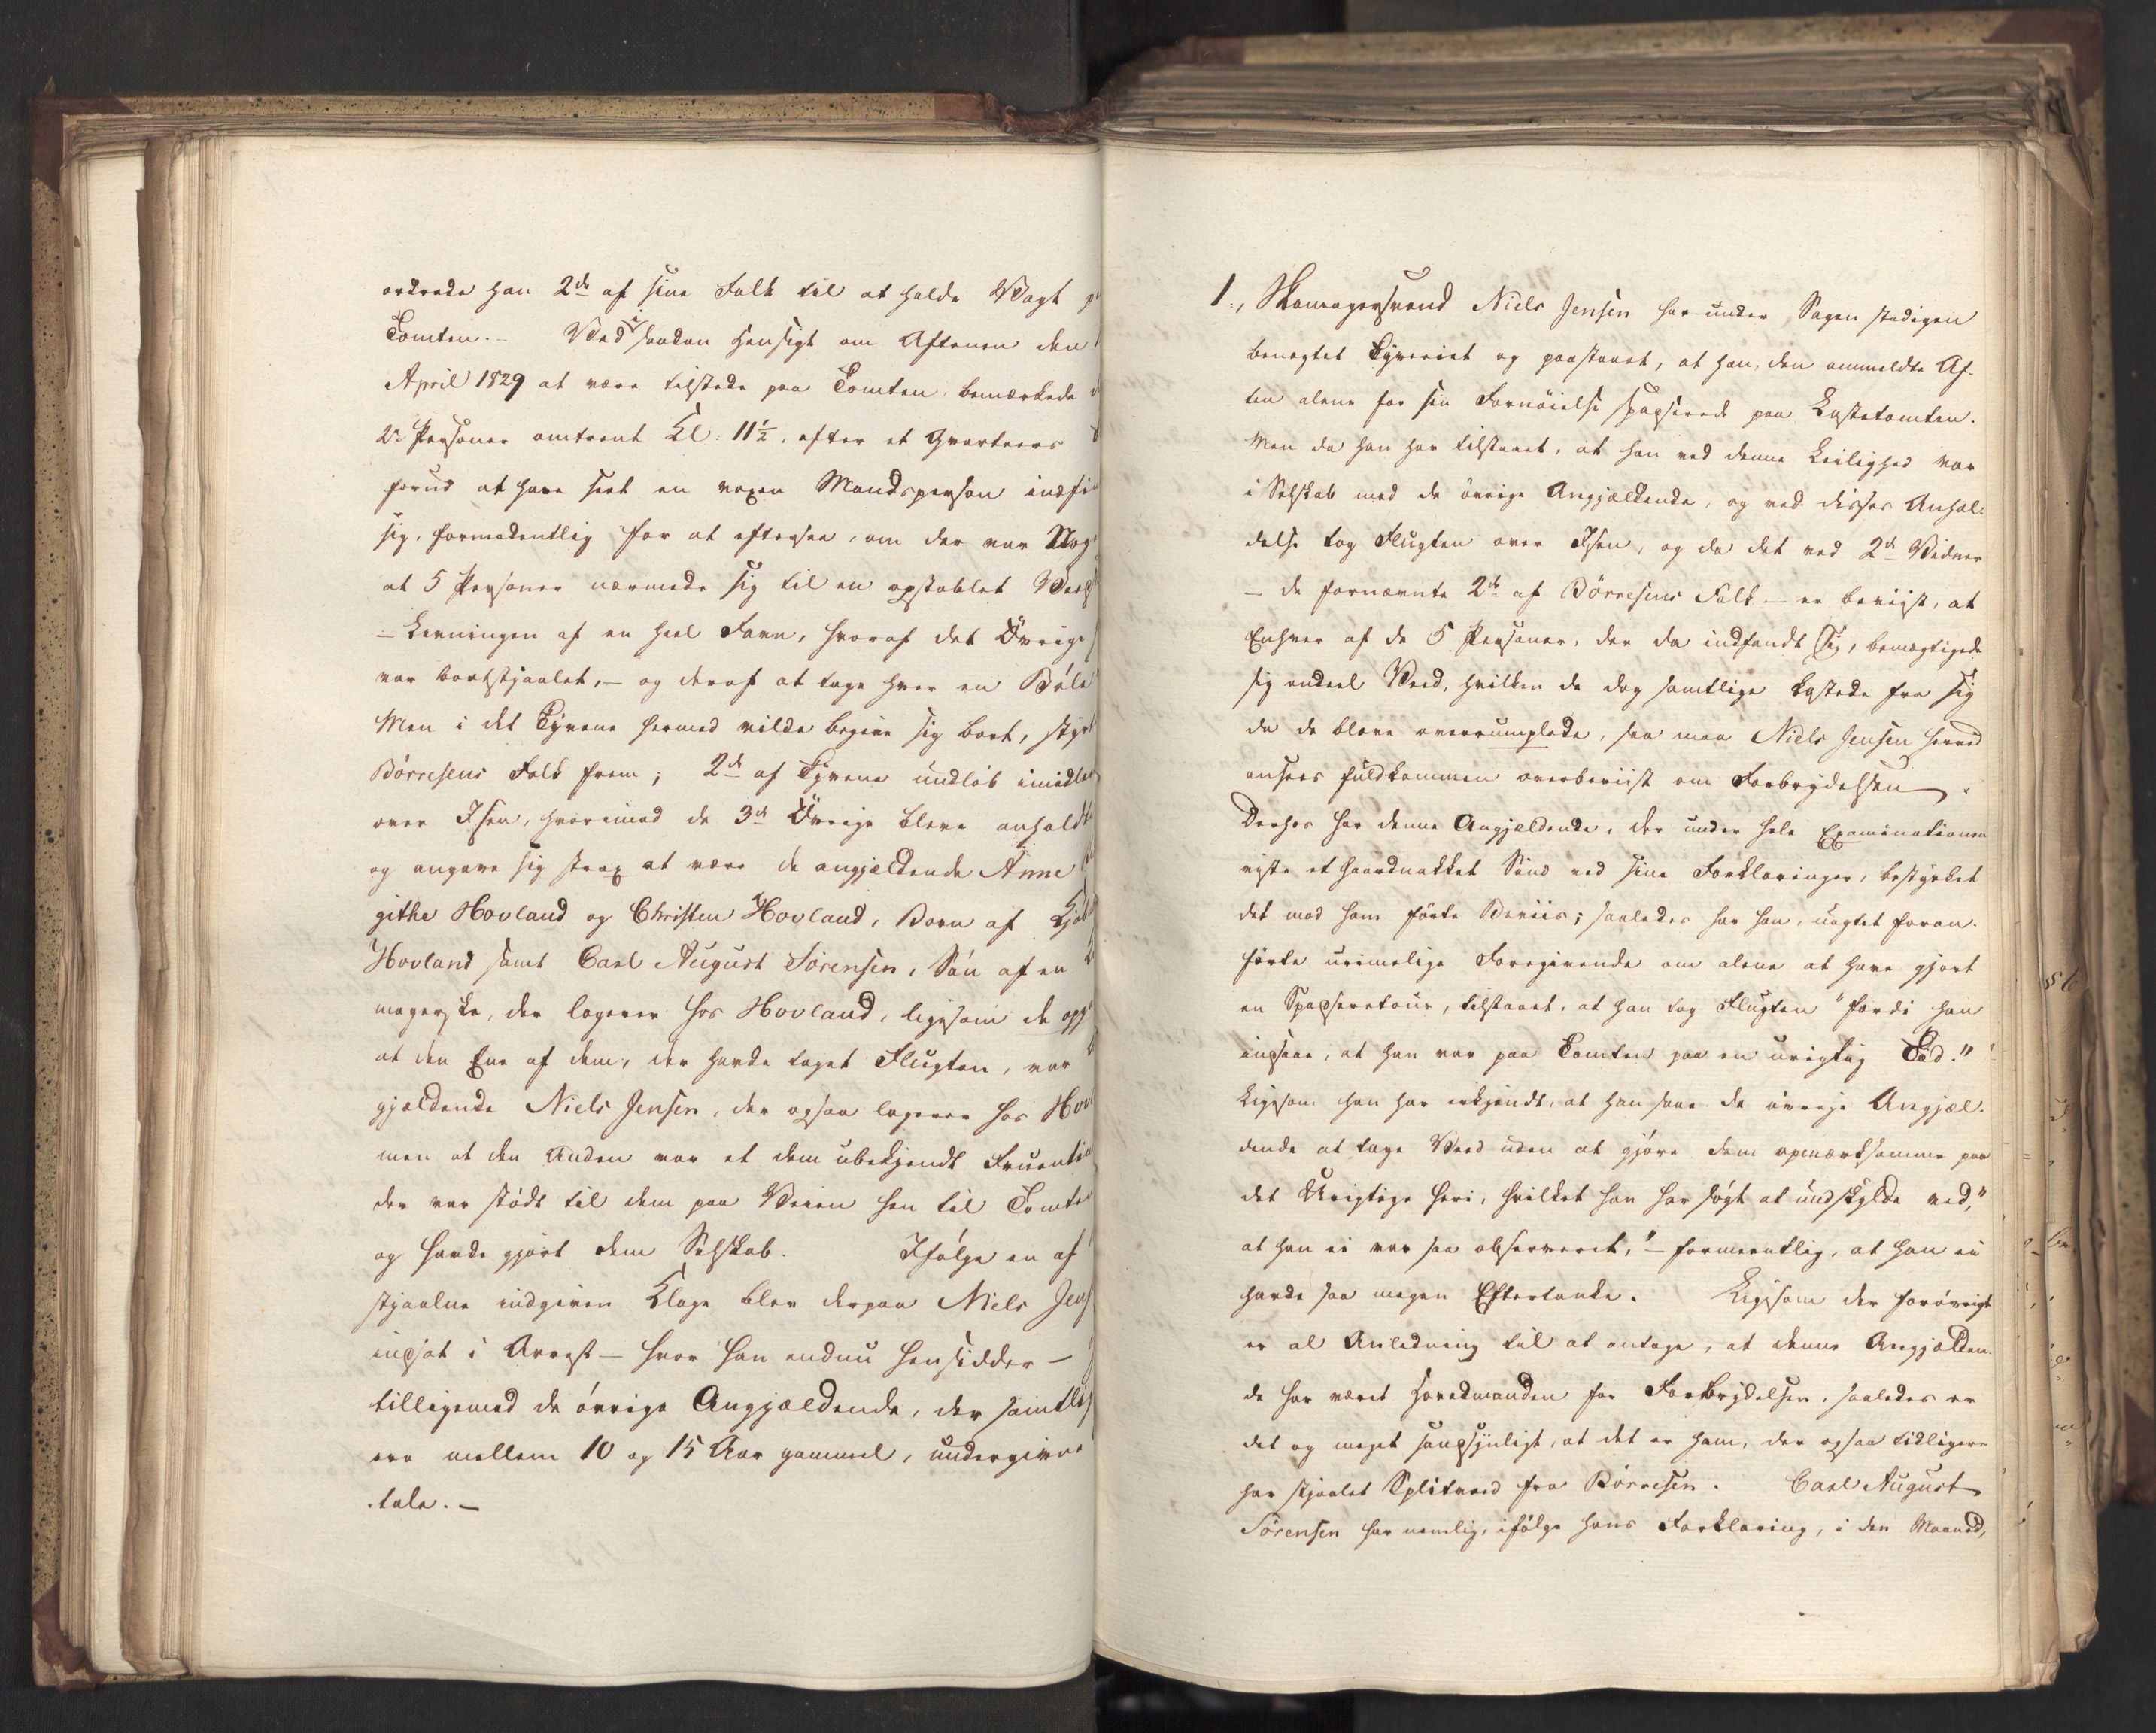 ordrede han 2de af sine Folk til at holde Vagt p
Tomten. – Ved i saadan Hensigt om Aftenen den
April 1829 at være tilstede paa Tomten, bemærkede
2de Personer omtrent Kl: 11½, efter et Qvarteers
forud at have seet en voxen Mandsperson indfi
sig, formodentlig for at eftersee, om der var Nog
at 5 Personer nærmede sig til en opstablet Veed
– Levningen af en heel Favn, hvoraf det Övrige
var bortstjaalet, – og deraf at tage hver en Böle
Men i det Tyvene hermed vilde begive sig bort, styr
Börresens Folk frem; 2de af Tyvene undlöb imidle
over Isen, hvorimod de 3de Övrige bleve anholdt
og angave sig strax at være de angjældende Anne
githe Hovland og Christen Hovland, Børn af
Hovland samt Carl August Sörensen, Sön af en
magerske, der logerer hos Hovland, ligesom de opg
at den Ene af dem, der havde taget Flugten, var
gjældende Niels Jensen, der ogsaa logerer hos Hov
men at den Anden var et dem ubekjendt Fruenti
der var stödt til dem paa Veien hen til Tomte
og havde gjort dem Selskab. Ifölge en af
stjaalne indgiven Klage blev derpaa Niels Jens
indsat i Arrest – hvor han endnu hensidder –
tilligemed de övrige Angjældende, der samtlig
ere mellem 10 og 15 Aar gammel, undergivne
tale. –
1., Skomagersvend Niels Jensen har under Sagen stadigen
benegtet Tyveriet og paastaaet, at han, den ommeldte Af-
ten alene for sin Fornöielse spadserede paa Lastetomten.
Men da han har tilstaaet, at han ved denne Leilighed var
i Selskab med de övrige Angjældende, og ved disses Anhol-
delse tog Flugten over Isen, og da det ved 2de Vidner
– de fornævnte 2de af Börresens Folk – er beviist, at
Enhver af de 5 Personer, der da indfandt sig, bemægtigede
sig endeel Veed, hvilken de dog samtlige kastede fra sig
da de bleve overrumplede, saa maa Niels Jensen herved
ansees fuldkommen overbeviist om Forbrydelsen.
Derhos har denne Angjældende, der under hele Examinationen
viste et haardnakket Sind ved sine Forklaringer, bestyrket
det mod ham förte Beviis; saaledes har han, uagtet foran-
förte urimelige Foregivende om alene at have gjort
en Spadseretour, tilstaaet, at han tog Flugten "fordi han
indsaae, at han var paa Tomten paa en urigtig Tid."
Ligesom han har erkjendt, at han saae de övrige Angjæl-
dende at tage Veed uden at gjöre dem opmærksomme paa
det Urigtige heri, hvilket han har sögt at undskylde ved,"
at han ei var saa observeret," – formeentlig, at han ei
havde saa megen Eftertanke. Ligesom der foröVrigt
er al Anledning til at antage, at denne Angjælden-
de har været Hovedmanden for Forbrydelsen, saaledes er
det og meget sandsynligt, at det er ham, der ogsaa tidligere
har stjaalet Splitveed fra Börresen. Carl August
Sörensen har nemlig, ifölge hans Forklaring, i den Maaned,